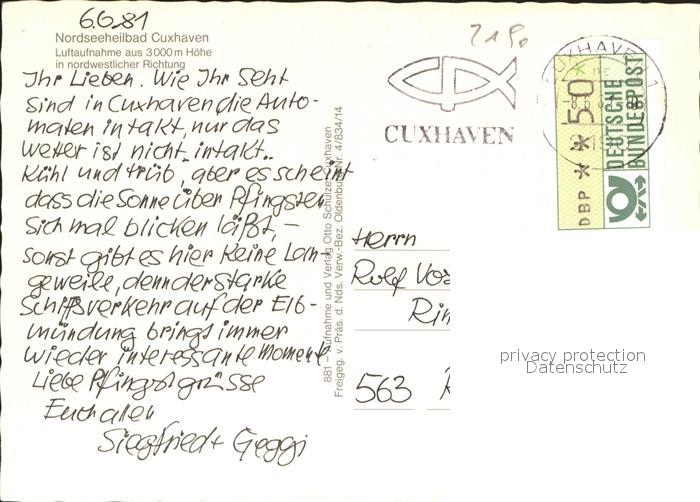 6.6.81
Nordseeheilbad Cuxhaven
Luftaufnahme aus 3000 m Höhe
in nordwestlicher Richtung
Ihr Lieben. Wie Ihr seht
sind in Cuxhaven die Auto-
maten intakt, nur das
Wetter ist nicht intakt..
Kühl und trüb, aber es scheint
dass die Sonne über Pfingsten
sich mal blicken läßt, –
sonst gibt es hier keine Lan-
geweile, denn der starke
Schiffsverkehr auf der Elb-
mündung bringt immer
wieder interessante Momente
Liebe Pfingstgrüsse
Euch allen
Siegfried +
881 – Aufnahme und Verlag Otto Schulze Cuxhaven
Freigeg. v. Präs. d. Nds. Verw.-Bez. Oldenburg Nr. 4/834/14
CUXHAVEN
CUXHAVEN 1
DBP * * 50 *
DEUTSCHE
BUNDESPOST
Herrn
Rolf
563
privacy protection
Datenschutz